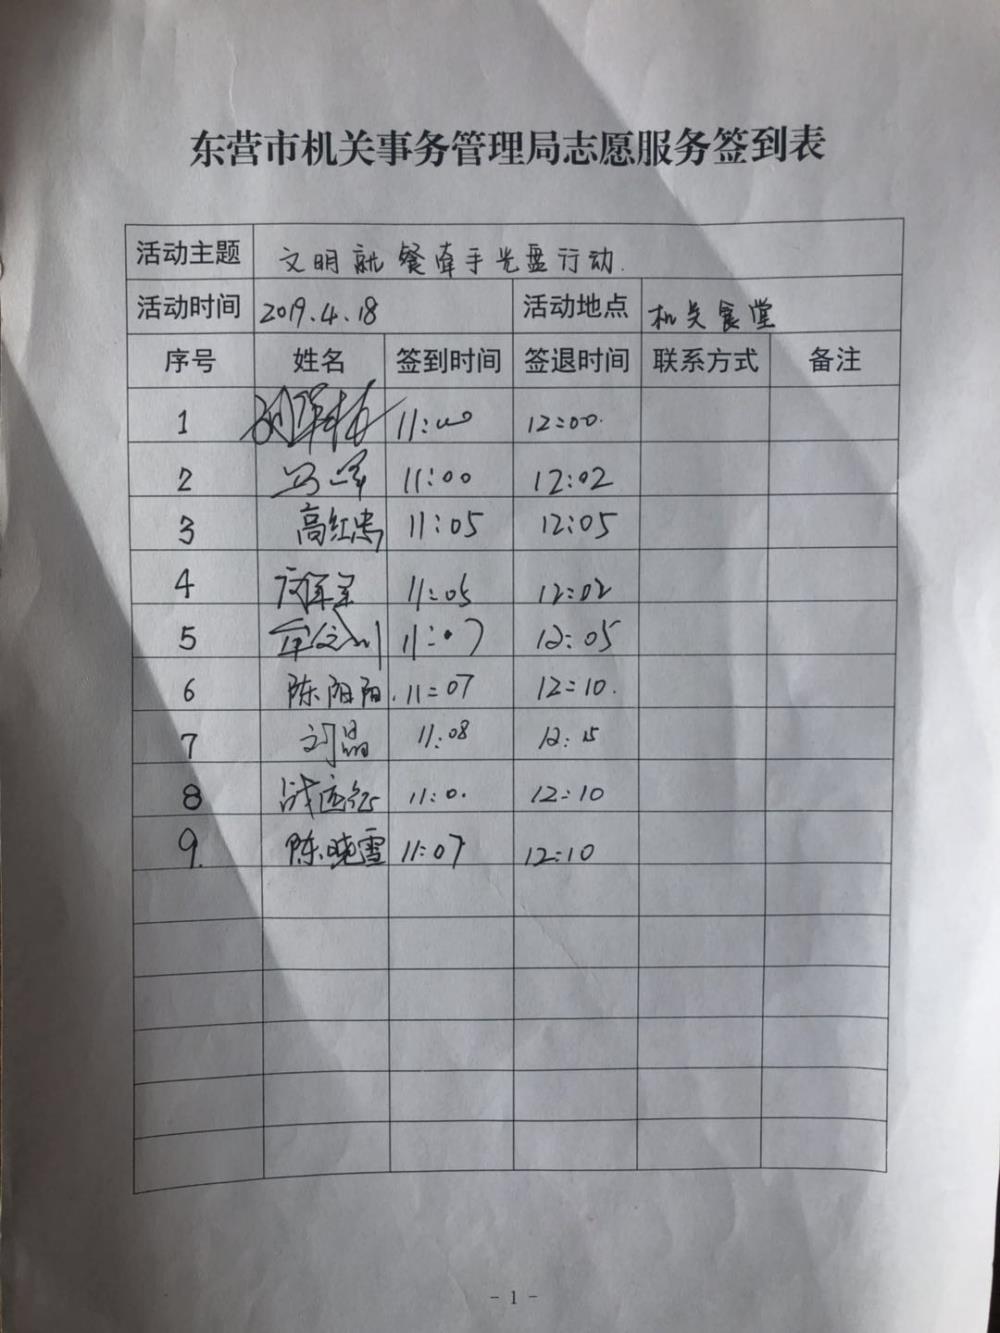 东营市机关事务管理局志愿服务签到表
活动主题 文明就餐牵手光盘行动.
活动时间 2019.4.18 活动地点 机关食堂
序号 姓名 签到时间 签退时间 联系方式 备注
1 11:00 12:00.
2 11:00 12:02
3 高红忠 11:05 12:05
4 11:05 12:02
5 11:07 12:05
6 陈阳阳. 11:07 12:10.
7 刘晶 11:08 12:15
8 11:0. 12:10
9. 陈晓雪 11:07 12:10
- 1 -